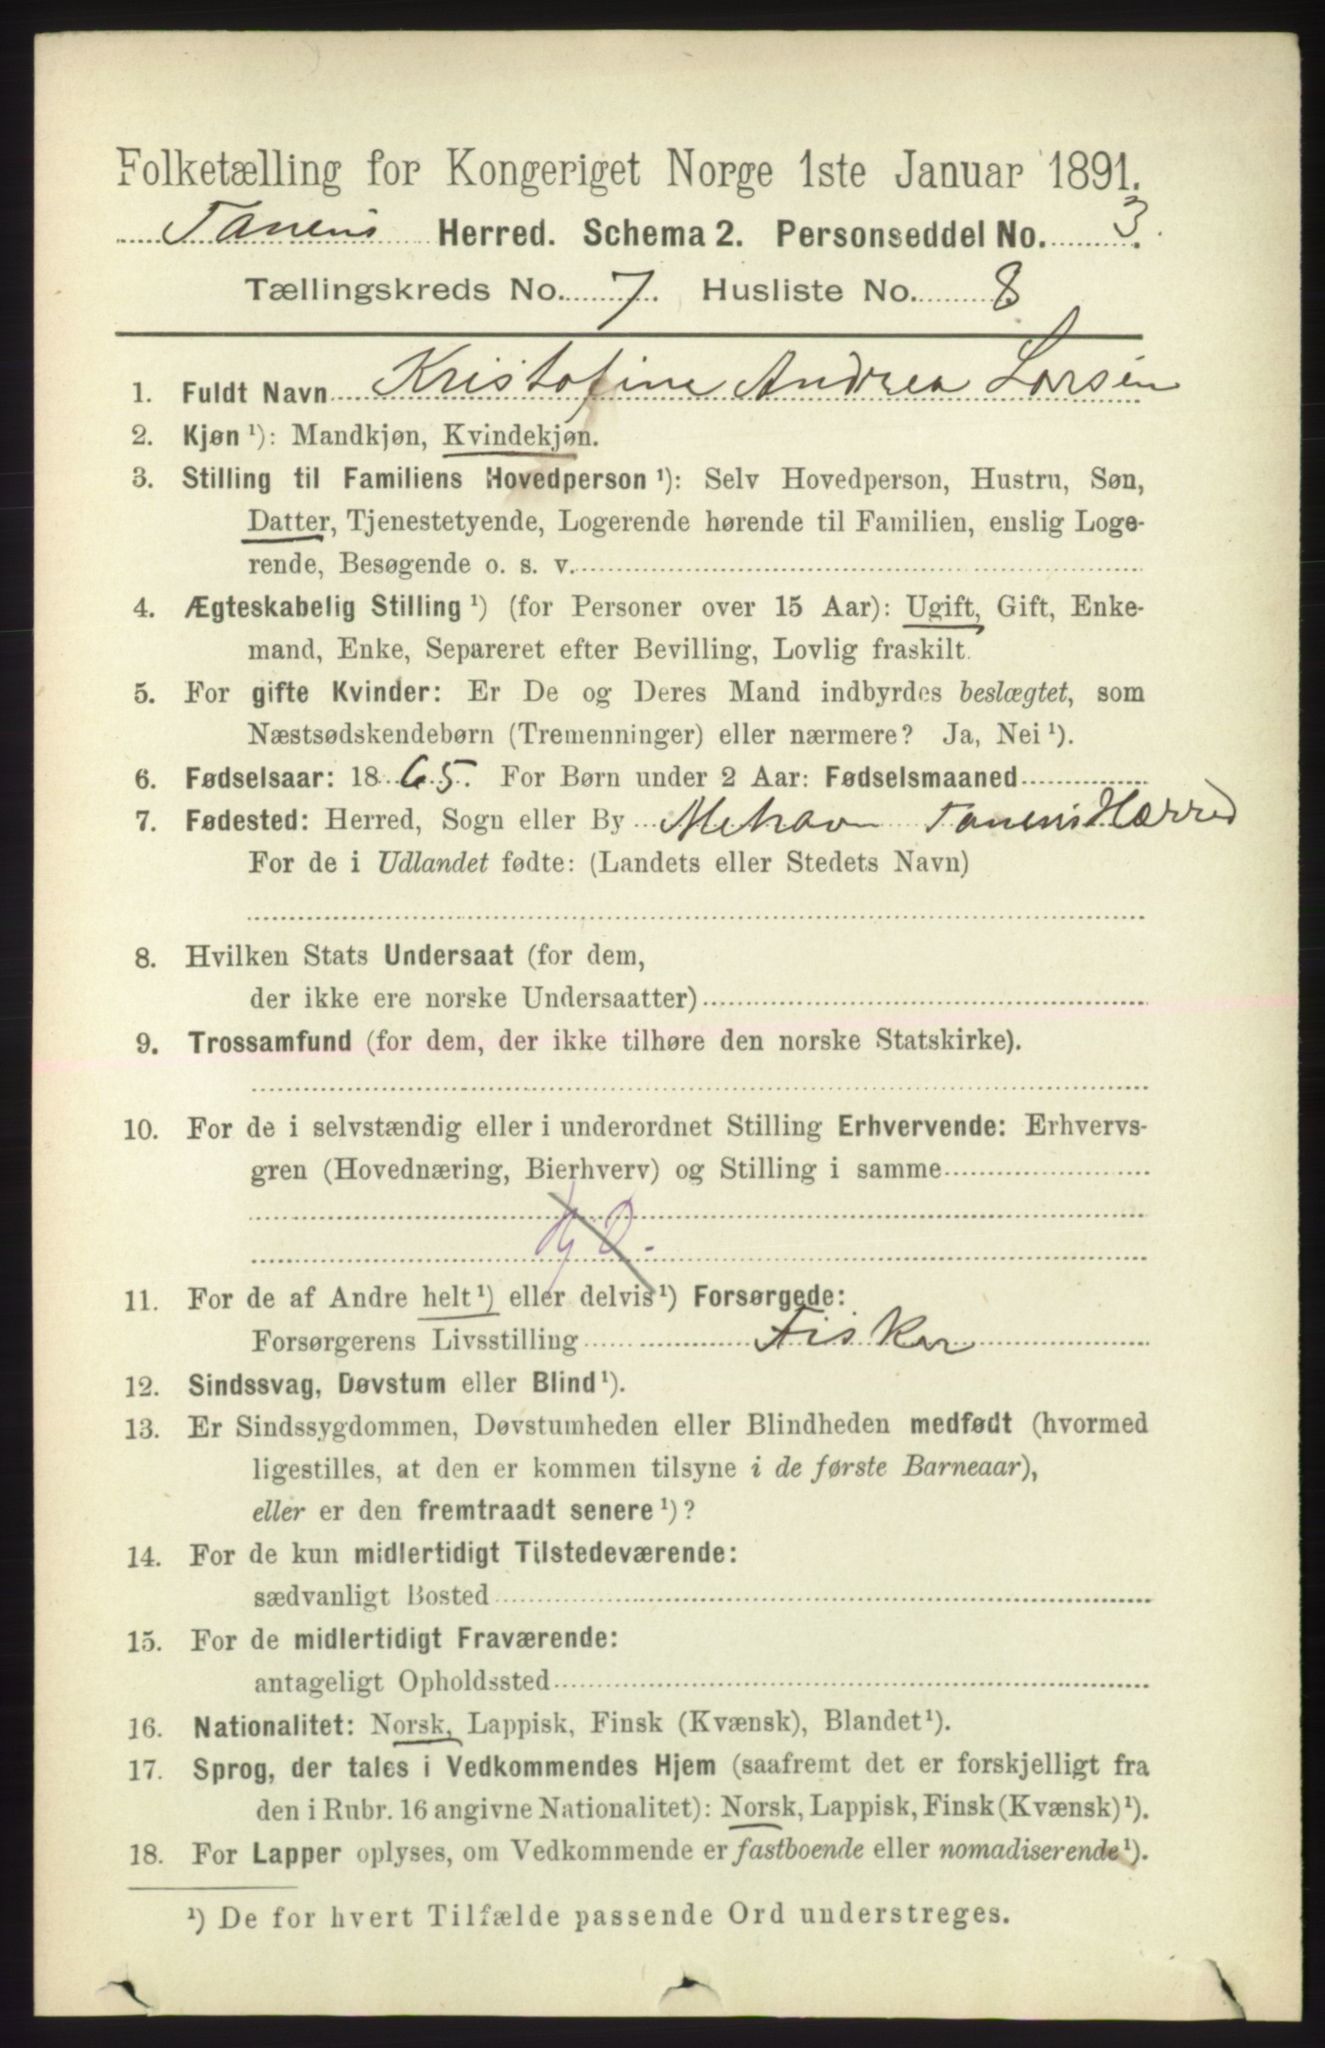 Folketælling for Kongeriget Norge 1ste Januar 1891.
Tanens Herred. Schema 2. Personseddel No. 3.
Tællingskreds No. 7. Husliste No. 8
1. Fuldt Navn Kristofine Andrea Larsen
2. Kjøn ¹): Mandkjøn, Kvindekjøn.
3. Stilling til Familiens Hovedperson ¹): Selv Hovedperson, Hustru, Søn,
Datter, Tjenestetyende, Logerende hørende til Familien, enslig Loge-
rende, Besøgende o. s. v.
4. Ægteskabelig Stilling ¹) (for Personer over 15 Aar): Ugift, Gift, Enke-
mand, Enke, Separeret efter Bevilling, Lovlig fraskilt.
5. For gifte Kvinder: Er De og Deres Mand indbyrdes beslægtet, som
Næstsødskendebørn (Tremenninger) eller nærmere? Ja, Nei ¹).
6. Fødselsaar: 1865. For Børn under 2 Aar: Fødselsmaaned
7. Fødested: Herred, Sogn eller By Mehavn Tanens Hærred
For de i Udlandet fødte: (Landets eller Stedets Navn)
8. Hvilken Stats Undersaat (for dem,
der ikke ere norske Undersaatter)
9. Trossamfund (for dem, der ikke tilhøre den norske Statskirke).
10. For de i selvstændig eller i underordnet Stilling Erhvervende: Erhvervs-
gren (Hovednæring, Bierhverv) og Stilling i samme
11. For de af Andre helt ¹) eller delvis ¹) Forsørgede:
Forsørgerens Livsstilling Fisker
12. Sindssvag, Døvstum eller Blind ¹).
13. Er Sindssygdommen, Døvstumheden eller Blindheden medfødt (hvormed
ligestilles, at den er kommen tilsyne i de første Barneaar),
eller er den fremtraadt senere ¹)?
14. For de kun midlertidigt Tilstedeværende:
sædvanligt Bosted
15. For de midlertidigt Fraværende:
antageligt Opholdssted
16. Nationalitet: Norsk, Lappisk, Finsk (Kvænsk), Blandet ¹).
17. Sprog, der tales i Vedkommendes Hjem (saafremt det er forskjelligt fra
den i Rubr. 16 angivne Nationalitet): Norsk, Lappisk, Finsk (Kvænsk) ¹).
18. For Lapper oplyses, om Vedkommende er fastboende eller nomadiserende ¹).
¹) De for hvert Tilfælde passende Ord understreges.